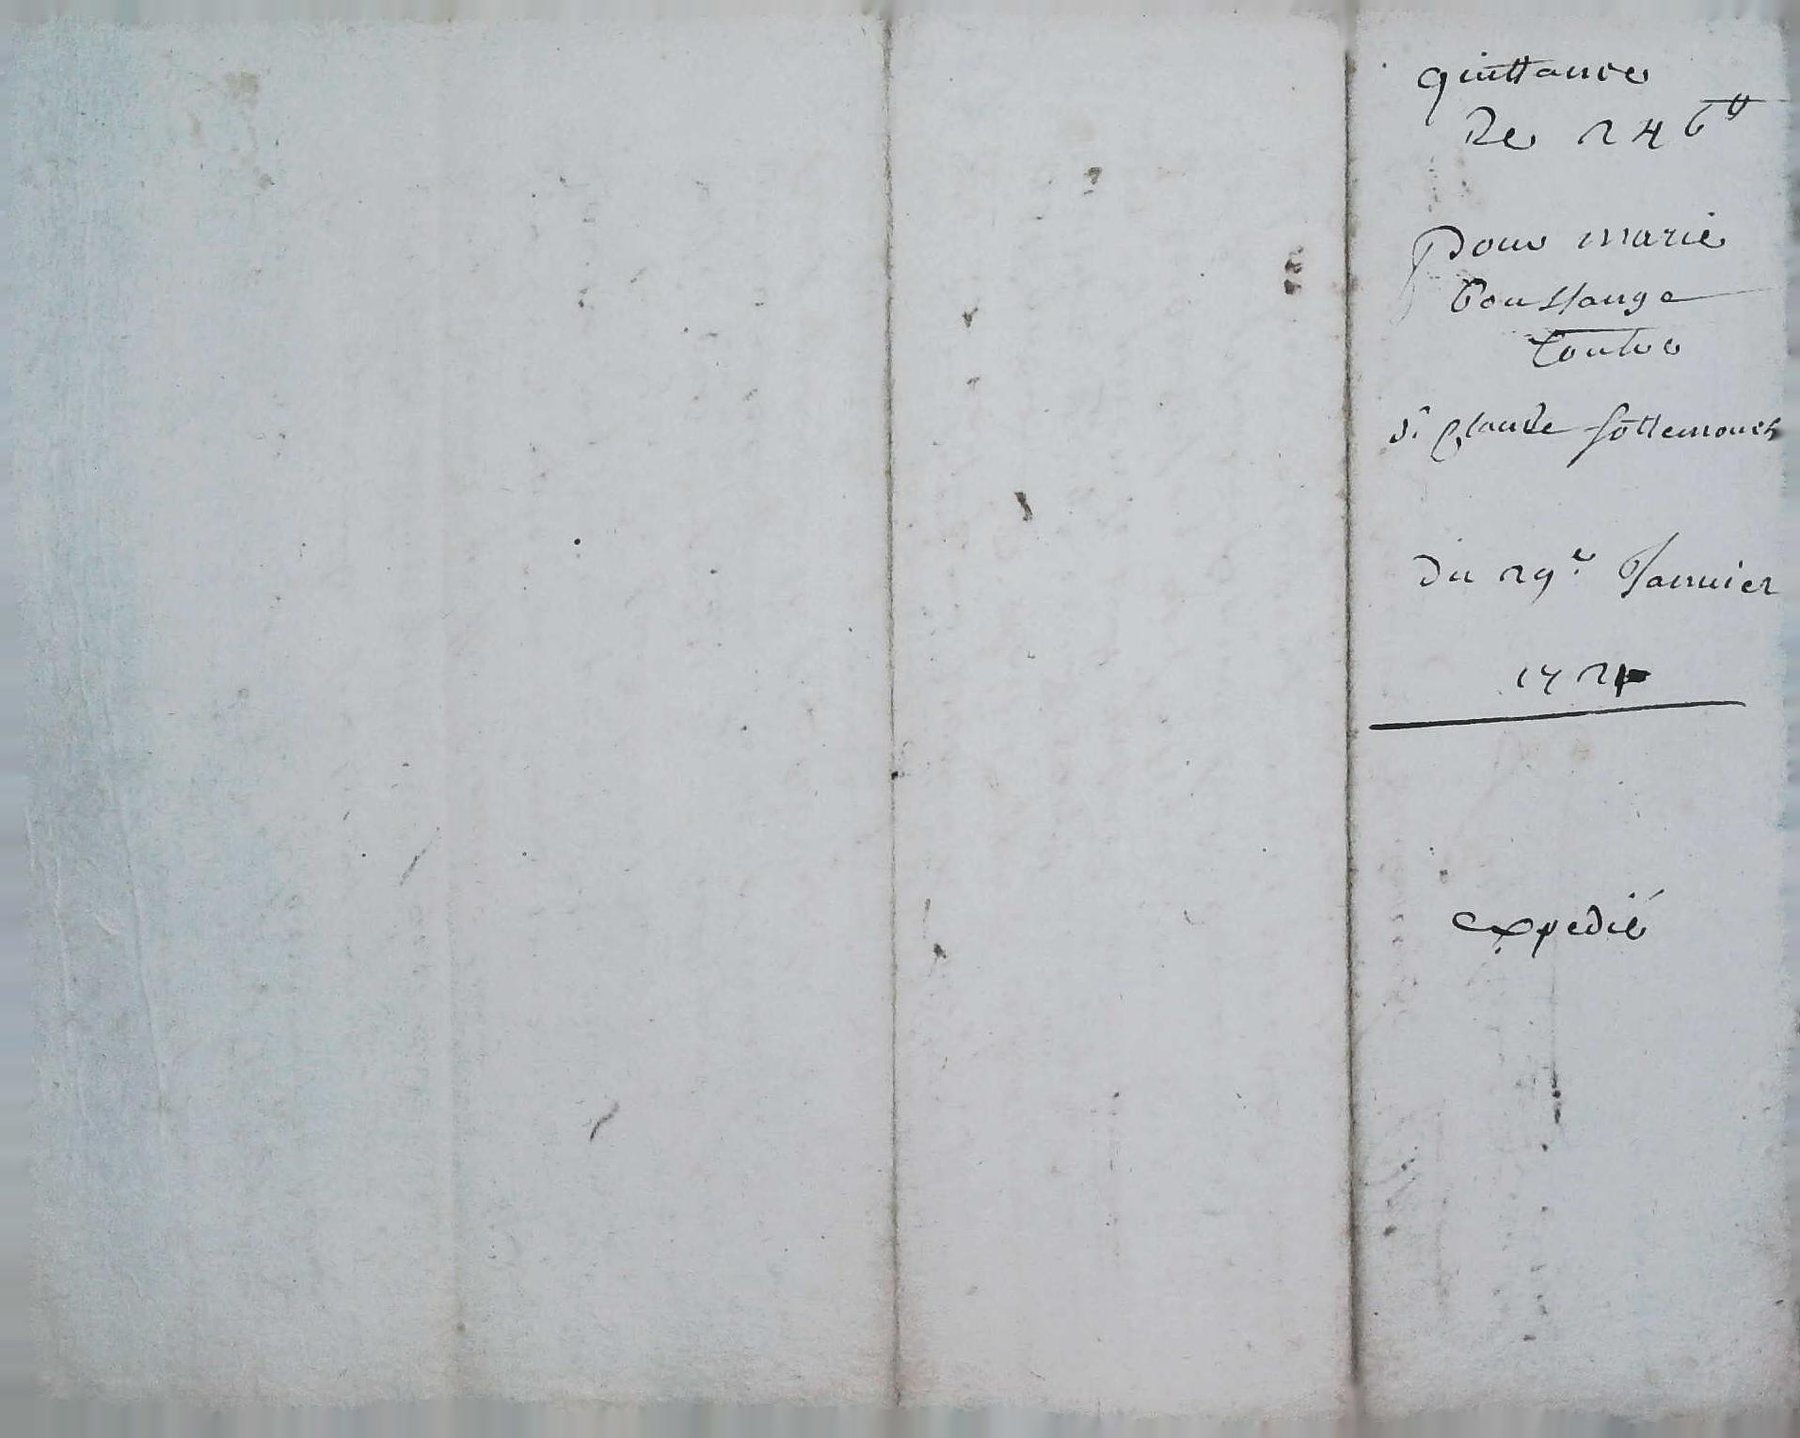 quittance
De 246tt
pour marie
Toussange
Contre
Sr. Claude sottemouch
du 29e. Janvier
1721
expedié